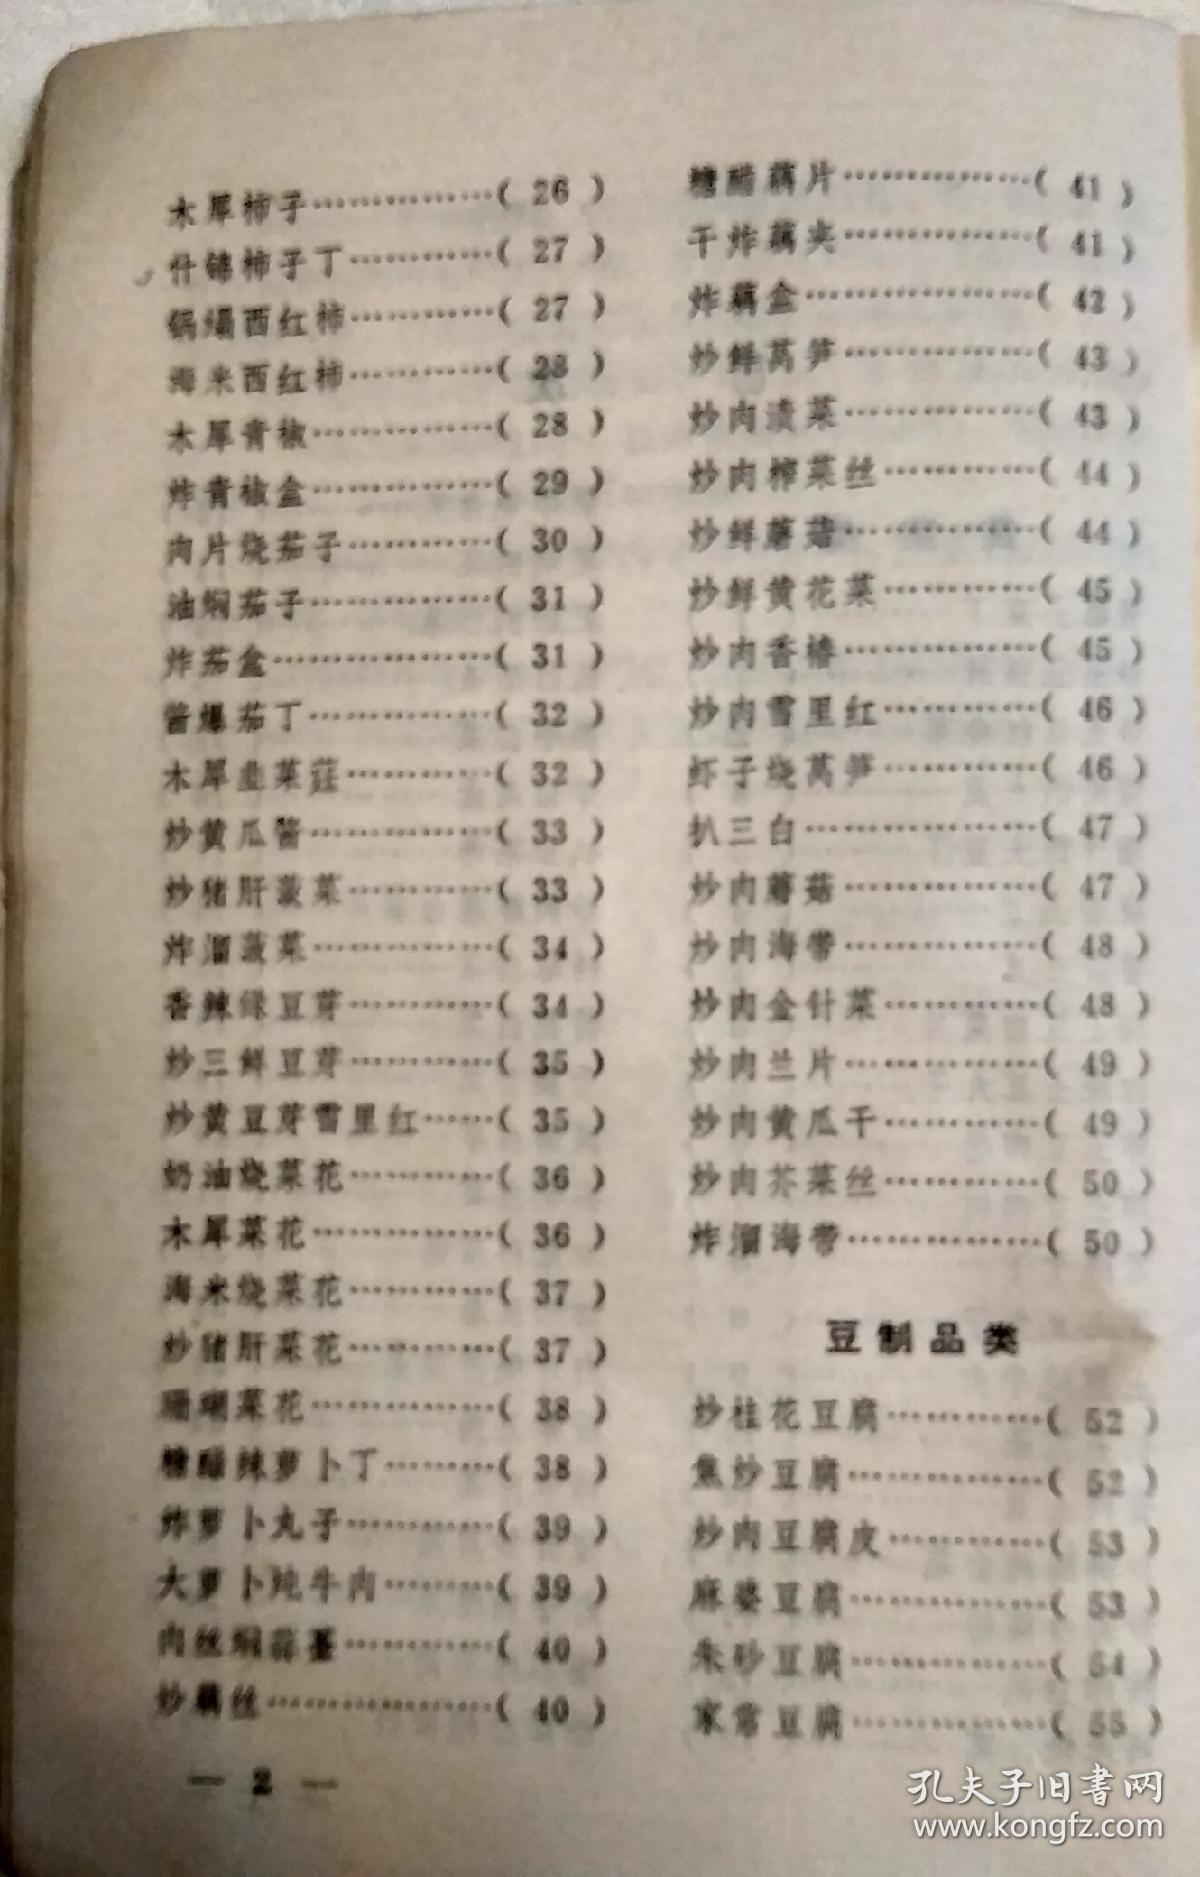 木犀柿子……………( 26 )
什锦柿子丁…………( 27 )
锅塌西红柿…………( 27 )
海米西红柿…………( 28 )
木犀青椒……………( 28 )
炸青椒盒……………( 29 )
肉片烧茄子…………( 30 )
油焖茄子……………( 31 )
炸茄盒………………( 31 )
酱爆茄丁……………( 32 )
木犀韭菜莛…………( 32 )
炒黄瓜酱……………( 33 )
炒猪肝菠菜…………( 33 )
炸溜菠菜……………( 34 )
香辣绿豆芽…………( 34 )
炒三鲜豆芽…………( 35 )
炒黄豆芽雪里红……( 35 )
奶油烧菜花…………( 36 )
木犀菜花……………( 36 )
海米烧菜花…………( 37 )
炒猪肝菜花…………( 37 )
珊瑚菜花……………( 38 )
糖醋辣萝卜丁………( 38 )
炸萝卜丸子…………( 39 )
大萝卜炖牛肉………( 39 )
肉丝焖蒜薹…………( 40 )
炒藕丝………………( 40 )
— 2 —
糖醋藕片……………( 41 )
干炸藕夹……………( 41 )
炸藕盒………………( 42 )
炒鲜莴笋……………( 43 )
炒肉渍菜……………( 43 )
炒肉榨菜丝…………( 44 )
炒鲜蘑菇……………( 44 )
炒鲜黄花菜…………( 45 )
炒肉香椿……………( 45 )
炒肉雪里红…………( 46 )
虾子烧莴笋…………( 46 )
扒三白………………( 47 )
炒肉蘑菇……………( 47 )
炒肉海带……………( 48 )
炒肉金针菜…………( 48 )
炒肉兰片……………( 49 )
炒肉黄瓜干…………( 49 )
炒肉芥菜丝…………( 50 )
炸溜海带……………( 50 )
豆制品类
炒桂花豆腐…………( 52 )
焦炒豆腐……………( 52 )
炒肉豆腐皮…………( 53 )
麻婆豆腐……………( 53 )
朱砂豆腐……………( 54 )
家常豆腐……………( 55 )
孔夫子旧书网
www.kongfz.com